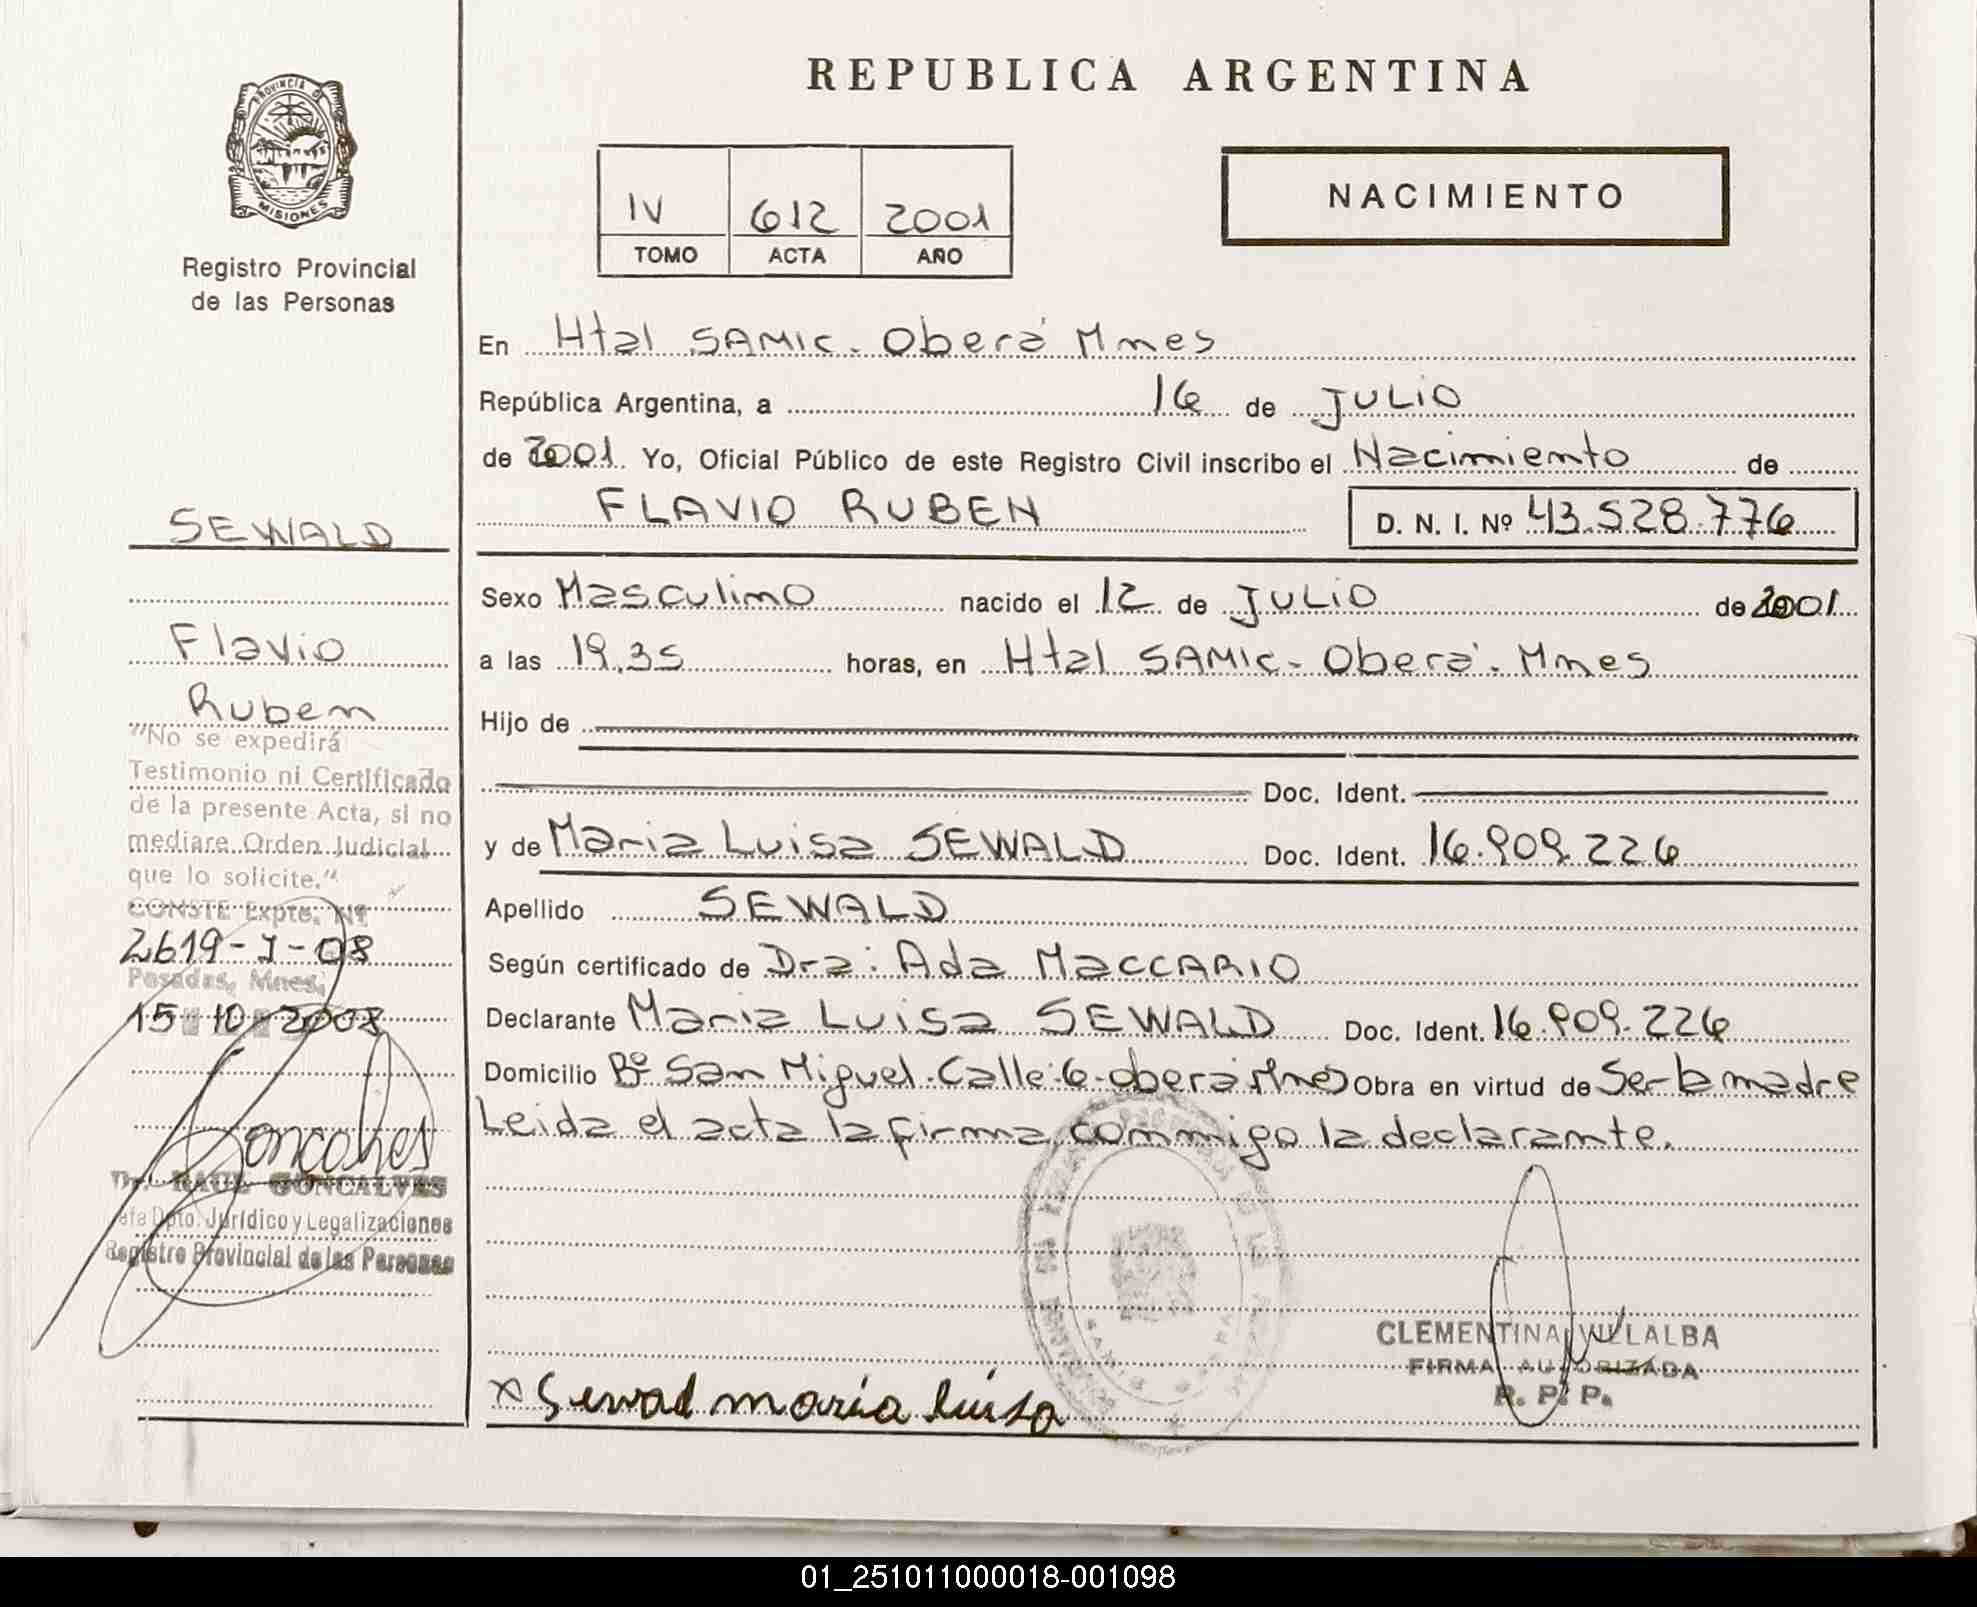 REPUBLICA ARGENTINA
PROVINCIA D
MISIONES
Registro Provincial
de las Personas
IV 612 2001
TOMO ACTA AÑO
NACIMIENTO
En Htal SAMIC - Oberá Mnes
República Argentina, a 16 de JULIO
de 2001 Yo, Oficial Público de este Registro Civil inscribo el Nacimiento de
FLAVIO RUBEN D. N. I. Nº 43.528.776
Sexo Masculino nacido el 12 de JULIO de 2001
a las 19.35 horas, en Htal SAMIC - Oberá - Mnes
Hijo de
Doc. Ident.
y de Maria Luisa SEWALD Doc. Ident. 16.909.226
Apellido SEWALD
Según certificado de Dra: Ada MACCARIO
Declarante Maria Luisa SEWALD Doc. Ident. 16.909.226
Domicilio Bº San Miguel - Calle: 6 - Oberá Mnes Obra en virtud de Ser la madre
Leida el acta la firma conmigo la declarante.
CLEMENTINA VILLALBA
FIRMA AUTORIZADA
R. P. P.
x Sewad maría luisa
SEWALD
Flavio
Ruben
"No se expedirá
Testimonio ni Certificado
de la presente Acta, si no
mediare Orden Judicial
que lo solicite."
CONSTE Expte. Nº
2619-J-08
Posadas, Mnes;
15 10 2008
Goncalves
Dr. RAUL GONCALVES
Jefe Dpto. Jurídico y Legalizaciones
Registro Provincial de las Personas
01_251011000018-001098